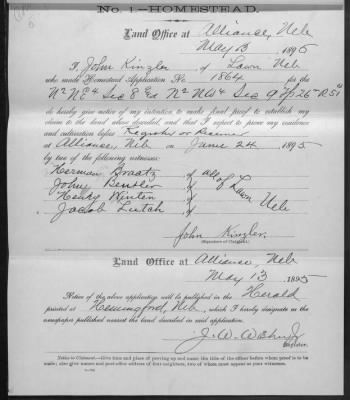 No. 1.—HOMESTEAD.
Land Office at Alliance, Neb
May 13 1895
I, John Kinzler, of Lawn Neb
who made Homestead Application No. 1864 for the
N2 NE4 Sec 8 & N2 NW4 Sec 9 Tp 26 R 51
do hereby give notice of my intention to make final proof to establish my
claim to the land above described, and that I expect to prove my residence
and cultivation before Register or Receiver
at Alliance, Neb on June 24 1895
by two of the following witnesses:
Herman Braatz of all
John Bentler of of Lawn
Henry Winten of Neb
Jacob Lutch of
John Kinzler.
(Signature of Claimant.)
Land Office at Alliance, Neb
May 13 1895
Notice of the above application will be published in the Herald
printed at Hemingford, Neb, which I hereby designate as the
newspaper published nearest the land described in said application.
J. W.
Register.
Notice to Claimant.—Give time and place of proving up and name the title of the officer before whom proof is to be
made; also give names and post office address of four neighbors, two of whom must appear as your witnesses.